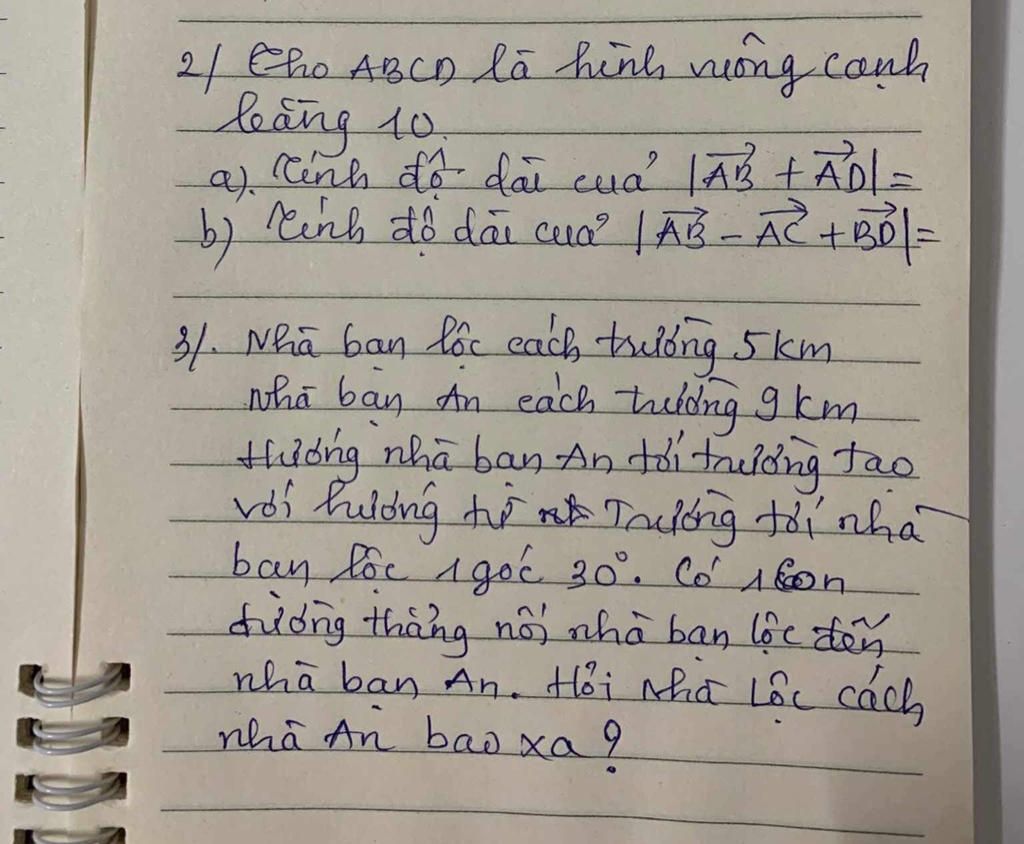 2/ Cho ABCD là hình vuông cạnh
bằng 10.
a). Tính độ dài của |AB + AD| =
b) Tính độ dài của |AB - AC + BD| =
3/. Nhà bạn Lộc cách trường 5km
Nhà bạn An cách trường 9km
Hướng nhà bạn An tới trường tạo
với hướng từ Trường tới nhà
bạn Lộc 1 góc 30°. Có 1 con
đường thẳng nối nhà bạn Lộc đến
nhà bạn An. Hỏi Nhà Lộc cách
nhà An bao xa?